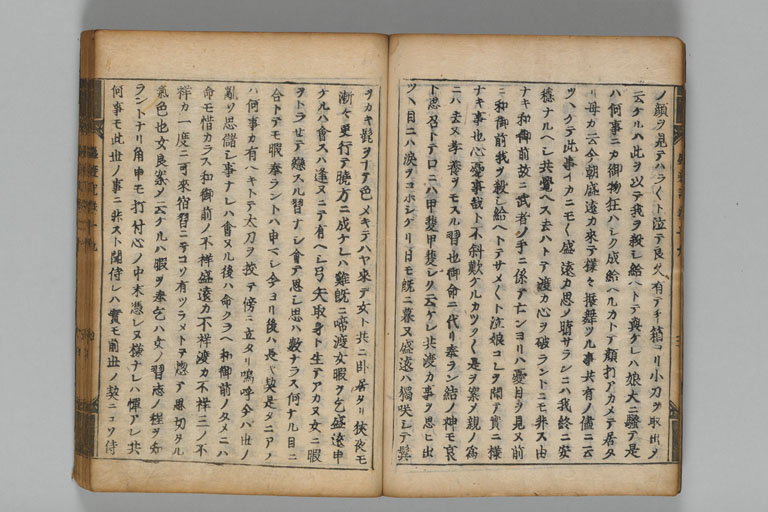 ノ顔ヲ見テハラ〳〵ト泣テ良久有テ手箱ヨリ小刀ヲ取出ヲ
云ケルハ此ヲ以テ我ヲ殺シ給ヘトテ與ケレハ娘大ニ騒テ是
ハ何事ニカ御物狂ハシク成給ヘルカトテ顔打アカメテ居タ
リ母カ云今朝盛遠カ來テ様々振舞ツル事共有ノ儘ニ云
ツヽケテ此事イカニモ〳〵盛遠カ思ノ晴サランニハ我終ニ安
穏ナルヘシ共覺ヘス去ハトテ渡カ心ヲ破ラントニモ非ス由
ナキ和御前故ニ武者ノ手ニ係テ亡ンヨリハ憂目ヲ見ヌ前
ニ和御前我ヲ殺シ給ヘトテサメ〳〵ト泣娘コレヲ聞テ實ニ様
ナキ事也心憂事哉ト不斜歎ケルカツク〳〵是ヲ案ノ親ノ為
ニハ去ヌ孝養ヲモスル習也御命ニ代リ奉ラン結ノ神モ哀
ト思召トテ口ニハ甲斐甲斐シク云ケレ共渡カ事ヲ思ヒ出
ツヽ目ニハ涙ヲコホシケリ日モ既ニ暮ヌ盛遠ハ獨咲シテ鬢
ヲカキ髭ヲナテ色メキテハヤ來テ女ト共ニ臥居タリ狹夜モ
漸々更行テ曉方ニ成ケレハ鷄既ニ啼渡女暇ヲ乞盛遠申
ケルハ會スハ逢ヌニテ有ヘシ弓矢取身ト生テアカヌ女ニ暇
ヲトラせテ戀スル習ナシ會テ思シ思ハ數ナラス何ナル目ニ
合トテモ暇奉ラントハ申マシ今ヨリ後ハ是々契是タニアノ
ハ何事カ有ヘキトテ太刀ヲ拔テ傍ニ立タリ嗚呼今ハ世ノ
亂ソ思儲シ事ナレハ會ヌル後ハ命クラヘ和御前ノタメニハ
命モ惜カラス和御前ノ不祥盛遠カ不祥渡カ不祥三ノ不
祥カ一度ニ可來宿習ニテコソ有ツラメトテ惣テ思切タル
氣色也女良案ノ云ケルハ暇ヲ奉乞ハ女ノ習志ノ程ヲ知
ラントナリ角申モ打付心ノ中末憑レヌ様ナレハ憚アレ共
何事モ此世ノ事ニ非スト聞侍レハ實モ前世ノ契ニコソ侍